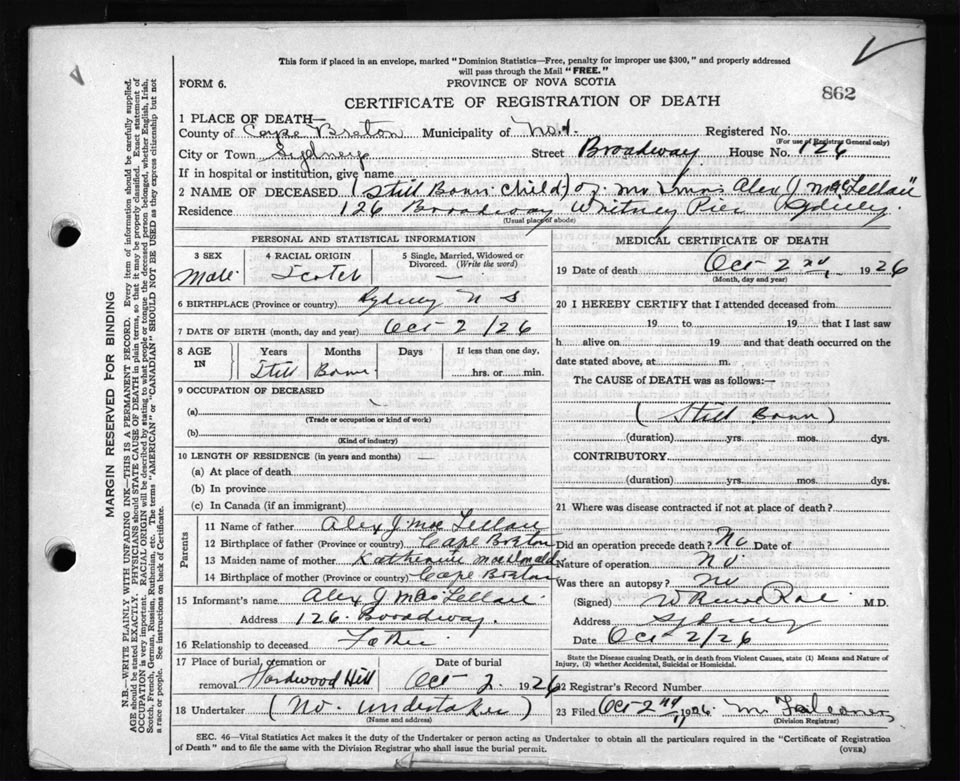 This form if placed in an envelope, marked "Dominion Statistics—Free, penalty for improper use $300," and properly addressed
will pass through the Mail "FREE."
FORM 6.
PROVINCE OF NOVA SCOTIA
CERTIFICATE OF REGISTRATION OF DEATH
862
1 PLACE OF DEATH—
County of Cape Breton Municipality of No. 1. Registered No.
(For use of Registrar General only)
City or Town Sydney Street Broadway House No. 126
If in hospital or institution, give name
2 NAME OF DECEASED (Still Born child) of Mr & Mrs Alex J MacLellan
Residence 126 Broadway Whitney Pier Sydney.
(Usual place of abode)
PERSONAL AND STATISTICAL INFORMATION
3 SEX Male
4 RACIAL ORIGIN Scotch
5 Single, Married, Widowed or Divorced. (Write the word) —
6 BIRTHPLACE (Province or country) Sydney N S
7 DATE OF BIRTH (month, day and year) Oct 2 /26
8 AGE IN Years Months Days If less than one day, hrs. or min.
Still Born
9 OCCUPATION OF DECEASED
(a)
(Trade or occupation or kind of work)
(b)
(Kind of industry)
10 LENGTH OF RESIDENCE (in years and months) —
(a) At place of death
(b) In province
(c) In Canada (if an immigrant)
Parents
11 Name of father Alex J MacLellan
12 Birthplace of father (Province or country) Cape Breton
13 Maiden name of mother Katherine MacDonald
14 Birthplace of mother (Province or country) Cape Breton
15 Informant's name Alex J MacLellan
Address 126 Broadway.
16 Relationship to deceased Father
17 Place of burial, cremation or removal Hardwood Hill
Date of burial Oct 2 1926
18 Undertaker (No undertaker)
(Name and address)
MEDICAL CERTIFICATE OF DEATH
19 Date of death Oct 2nd, 1926
(Month, day and year)
20 I HEREBY CERTIFY that I attended deceased from
19 to 19 that I last saw
h alive on 19 and that death occurred on the
date stated above, at m.
The CAUSE of DEATH was as follows:—
(Still Born)
(duration) yrs. mos. dys.
CONTRIBUTORY
(duration) yrs. mos. dys.
21 Where was disease contracted if not at place of death?
Did an operation precede death? No Date of
Nature of operation No
Was there an autopsy? No
(Signed) M.D.
Address Sydney
Date Oct 2/26
State the Disease causing Death, or in death from Violent Causes, state (1) Means and Nature of
Injury, (2) whether Accidental, Suicidal or Homicidal.
22 Registrar's Record Number
23 Filed Oct 2nd, 1926
(Division Registrar)
SEC. 46—Vital Statistics Act makes it the duty of the Undertaker or person acting as Undertaker to obtain all the particulars required in the "Certificate of Registration
of Death" and to file the same with the Division Registrar who shall issue the burial permit.
(OVER)
MARGIN RESERVED FOR BINDING
N.B.—WRITE PLAINLY WITH UNFADING INK—THIS IS A PERMANENT RECORD. Every item of information should be carefully supplied.
AGE should be stated EXACTLY. PHYSICIANS should STATE CAUSE OF DEATH in plain terms, so that it may be properly classified. Exact statement of
OCCUPATION is very important. RACIAL ORIGIN will be described by stating to what people or tongue the deceased person belonged, whether English, Irish,
Scotch, French, German, Russian, Ruthenian, etc. The terms "AMERICAN" or "CANADIAN" SHOULD NOT BE USED as they express citizenship but not
a race or people. See instructions on back of Certificate.